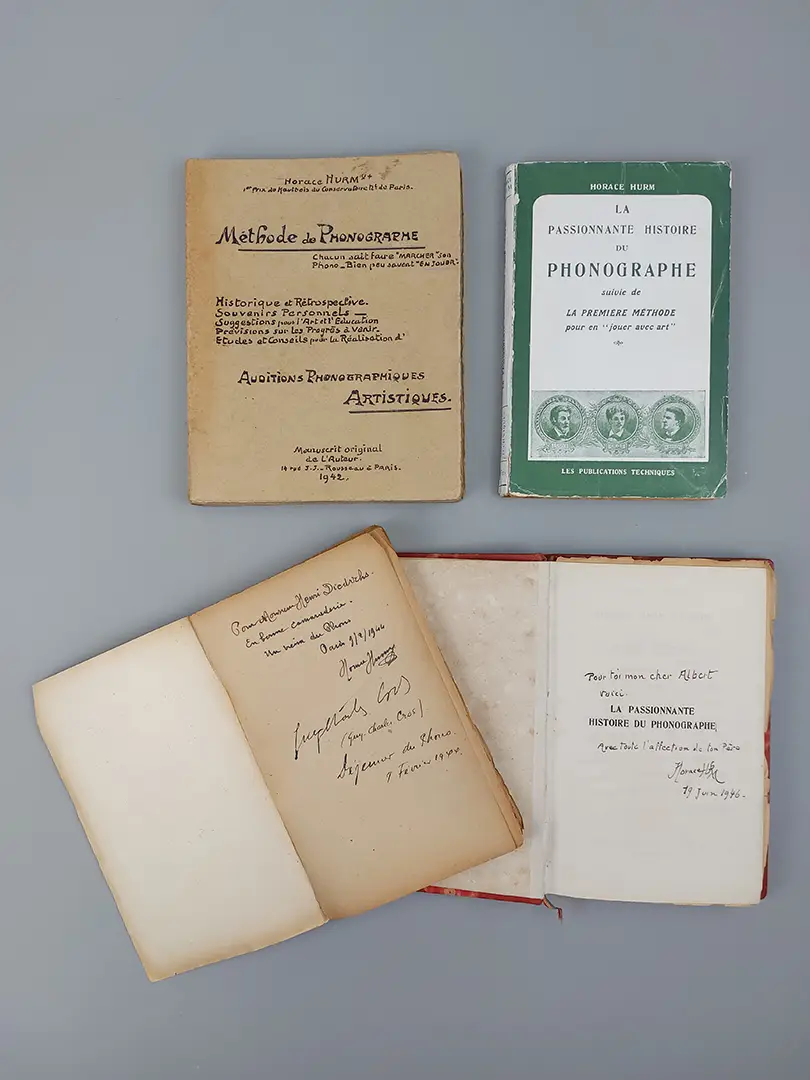 Horace HURM
1er Prix de Hautbois du Conservatoire Nal de Paris.
Méthode de PHONOGRAPHE
Chacun sait faire "MARCHER" son
Phono_Bien peu savent "EN JOUER".
Historique et Rétrospective.
Souvenirs Personnels _
Suggestions pour l'Art et l'Education
Prévisions sur les Progrès à Venir_
Etudes et Conseils pour la Réalisation d'
AUDITIONS PHONOGRAPHIQUES
ARTISTIQUES.
Manuscrit original
de L'Auteur.
14 rue J.J._Rousseau à Paris.
1942.
HORACE HURM
LA
PASSIONNANTE HISTOIRE
DU
PHONOGRAPHE
suivie de
LA PREMIÈRE MÉTHODE
pour en "jouer avec art"
LES PUBLICATIONS TECHNIQUES
Pour Monsieur Henri Diedrichs.
En bonne camaraderie.
Un du Phono
Paris 9/2/1944
Horace Hurm
Guy Charles Cros
(Guy-Charles Cros)
Déjeuner du Phono.
Février 1944
Pour toi mon cher Albert
voici.
LA PASSIONNANTE
HISTOIRE DU PHONOGRAPHE
Avec toute l'affection de ton Père
Horace H
19 Juin 1946.